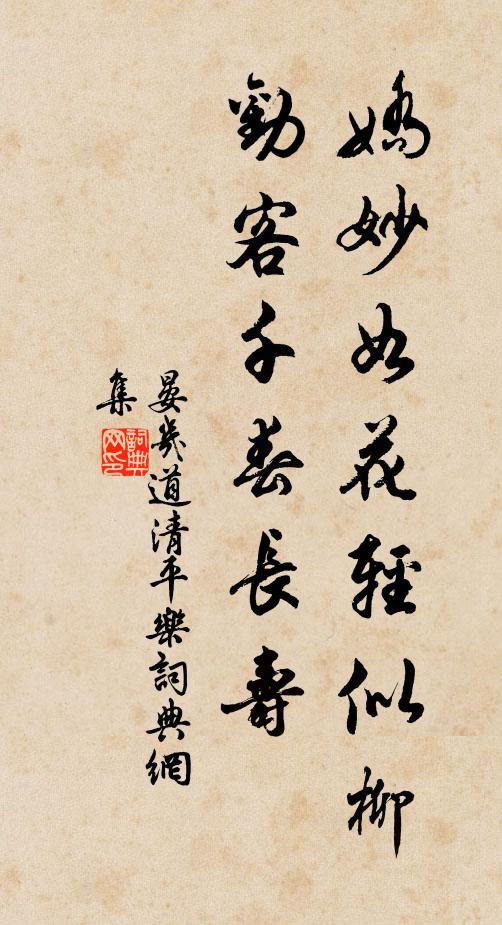 嬌妙如花輕似柳
勸客千春長壽
晏幾道清平樂詞典網
集
詞典
网印